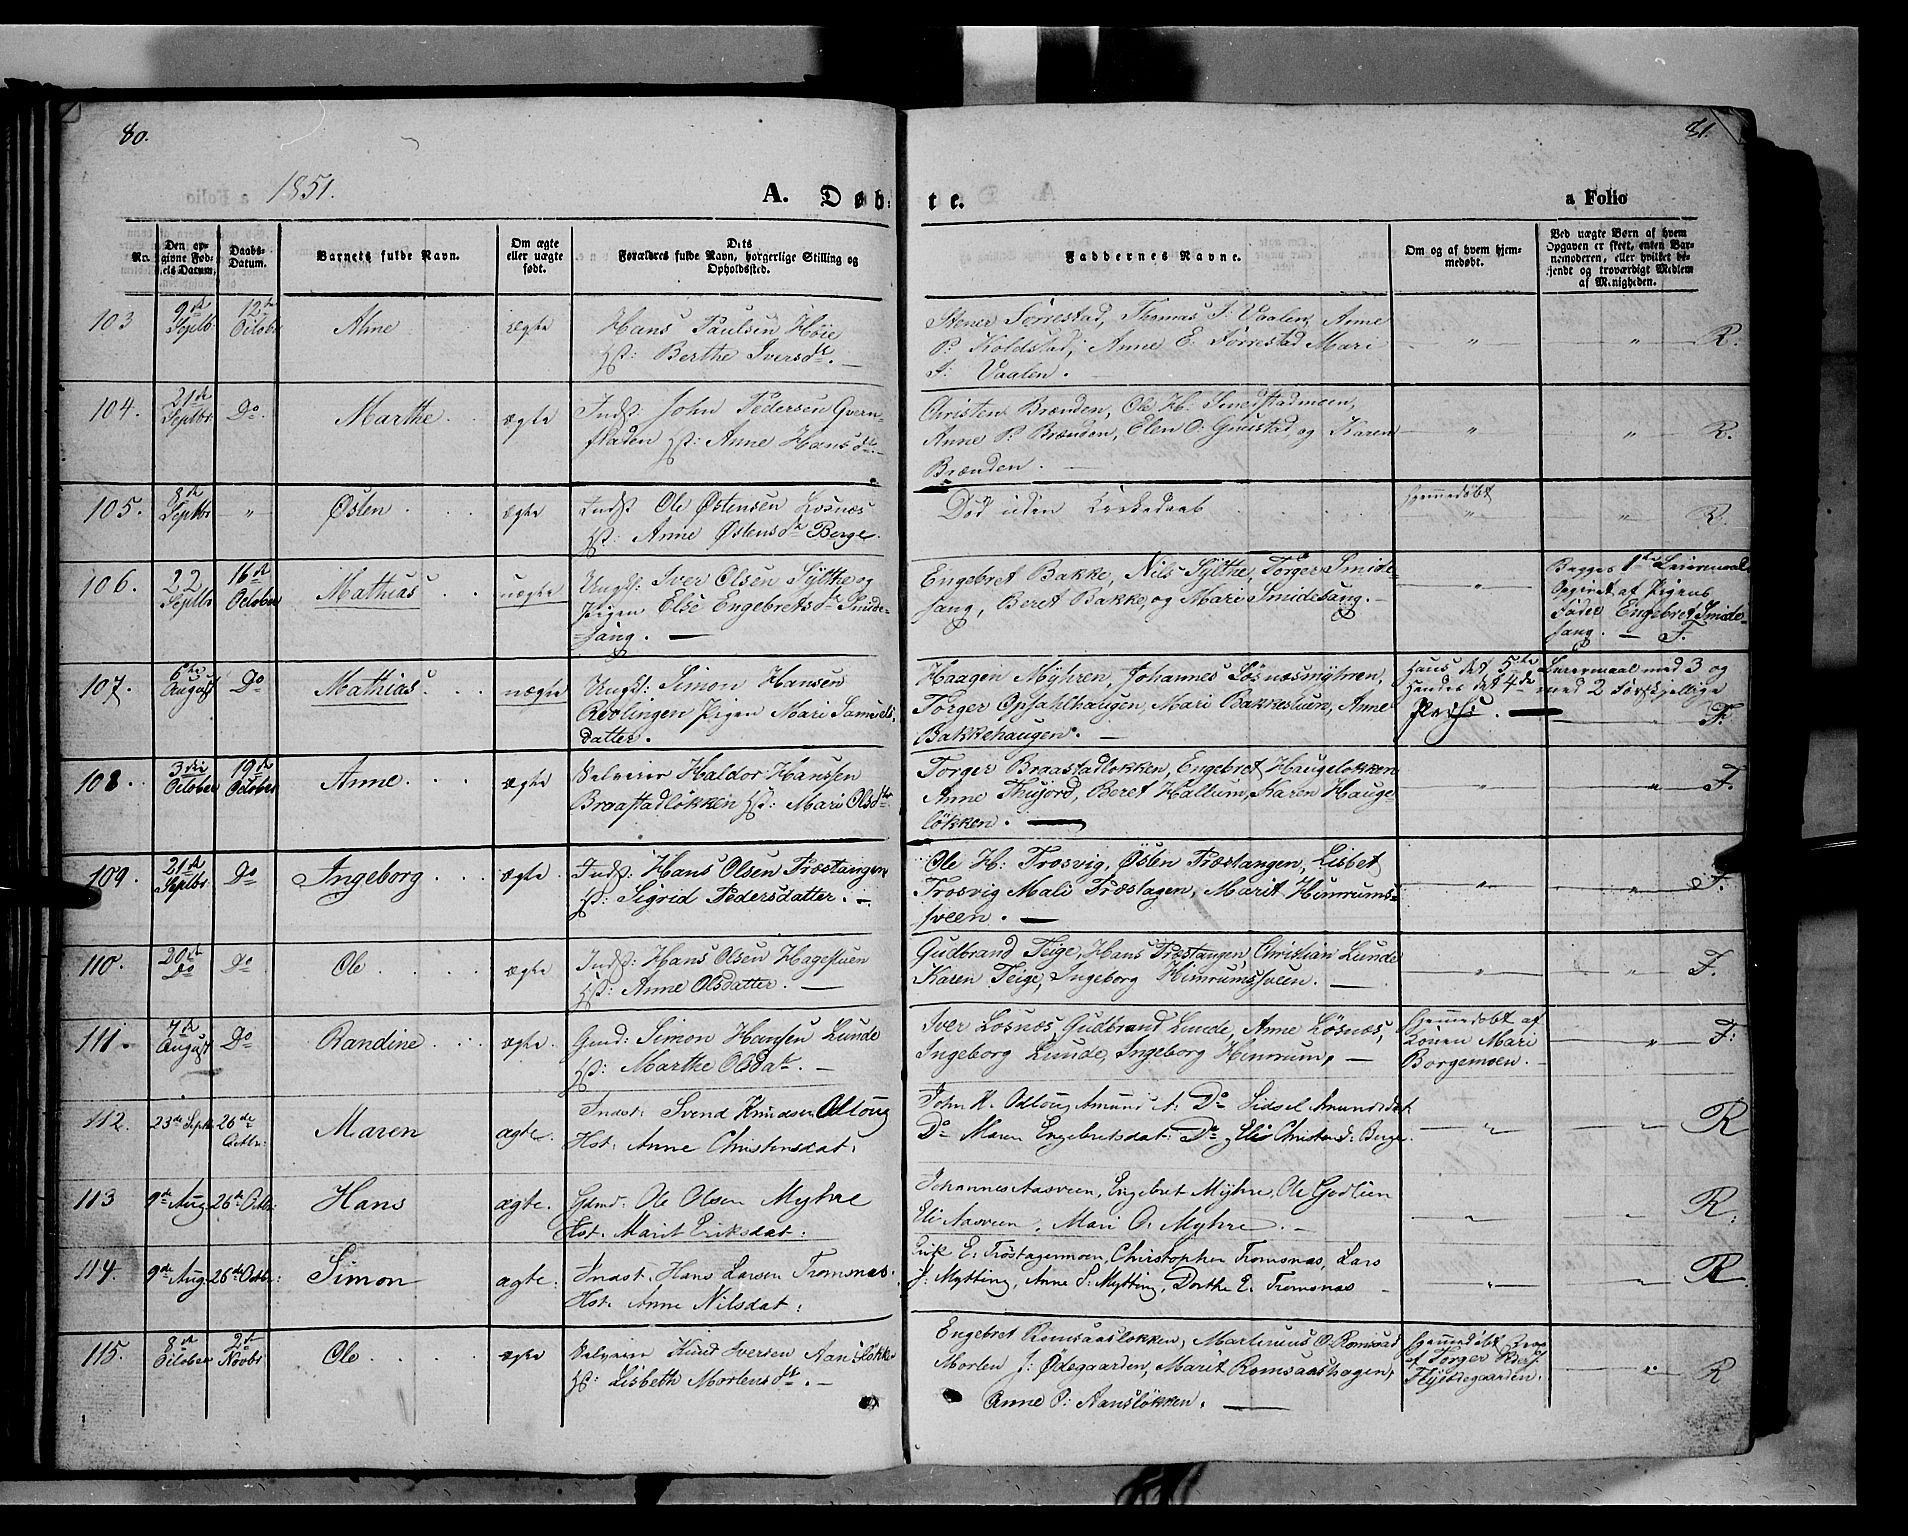 80.
81.
1851.
A. Døbte.
a Folio
No.
Den opgivne Fødsels Datum.
Daabs-Datum.
Barnets fulde Navn.
Om ægte eller uægte født.
Dets Forældres fulde Navn, borgerlige Stilling og Opholdssted.
Faddernes Navne.
Om og af hvem hjemmedøbt.
Ved uægte Børn af hvem Opgaven er skeet, enten Barnemoderen, eller hvilket betjendt og troværdigt Medlem af Menigheden.
103 9de Septbr 12te October Anne ægte
Hans Paulsen Høie
Hst: Berthe Iversdt. —
Stener Torrestad, Thomas I. Vaalen, Anne
P: Koldstad, Anne E. Torrestad Mari
I: Vaalen. — " " R.
104. 21de Septbr Do. Marthe ægte
Indst: John Pedersen Qvern-
fladen Hst: Anne Hansdt. —
Christen Brænden, Ole H: Smedstadmoen,
Anne P: Brænden, Elen O: Gunstad, og Karen
Brænden. — " " R.
105. 8de Septbr " Østen ægte
Indst Ole Østensen Losnæs
Hst: Anne Østensdt Berge.
Død uden Kirkedaab
Hjemmedøbt " " R.
106. 22 Septbr 16de October Mathias uægte
Ungk: Iver Olsen Sylthe og
Pigen Else Engebretsdt Smide-
sang. —
Engebret Bakke, Nils Sylthe, Torger Smide-
sang, Beret Bakke, og Mari Smidesang. — "
Begges 1ste Leiermaal
Opgivet af Pigens
Fader Engebret Smide-
sang. — F.
107. 6te August Do Mathias uægte
Ungk: Simon Hansen
Rovlingen Pigen Mari Samuels
datter.
Haagen Myhren, Johannes Losnæsmyhren,
Torger Opsahlhaugen, Mari Bakkestuen, Anne
Bakkehaugen. —
Hans det 5te Leiermaal med 3 og
Hendes det 4de med 2 forskjellige
Perso. — F.
108. 3die October 19de October Anne ægte
Selveier Haldor Hanssen
Braastadløkken Hst: Mari Olsdtr
Torger Braastadløkken, Engebret Haugeløkken
Anne Thijord, Beret Hallum, Karen Hauge-
løkken. — " " F.
109. 21de Septbr Do Ingeborg ægte
Indst: Hans Olsen Træstangen
Hst: Sigrid Pedersdatter. —
Ole H: Trosvig, Østen Træstangen, Lisbet
Trosvig Mali Træstagen, Marit Himrums-
sveen. — " " F.
110. 20de Do Do Ole ægte
Indst: Hans Olsen Hagestuen
Hst: Anne Olsdatter. —
Gudbrand Teige, Hans Træstangen, Christian Lunde
Karen Teige, Ingeborg Himrumssveen. — " " F.
111. 7de August Do Randine ægte
Gmd: Simon Hansen Lunde
Hst: Marthe Olsdatr. —
Iver Losnæs, Gudbrand Lunde, Anne Løsnæs,
Ingeborg Lunde, Ingeborg Himrum, —
Hjemmedøbt af
Konen Mari
Borgemoen. — " F:
112. 23de Septr 26de Octbr: Maren ægte.
Indst: Svend Knudsen Odloug
Hst: Anne Christensdat:
John K. Odloug Amund A: Do Sidsel Amundsdat
Do Maren Engebretsdat: Do Eli Christensd: Berge. " " R
113 9de Aug 26de Octbr: Hans ægte.
Gdmd: Ole Olsen Myhre
Hst. Marit Eriksdat:
Johannes Aasveen, Engebret Myhre, Ole Godlien
Eli Aasveen, Mari O: Myhre. — " " R:
114. 9de Aug. 26de Octbr: Simon ægte.
Indst. Hans Larsen Tromsnæs.
Hst. Anne Nilsdat:
Erik E: Tröstagenmoen, Christopher Tromsnæs, Lars
J: Mytting, Anne S: Mytting, Dorthe E. Tromsnæs — " " R
115. 8de October 2de Novbr Ole ægte
Selveier Knud Iversen Aansløkke
Hst: Lisbeth Mortensdt. —
Engebret Romsaasløkken, Martinus O. Romsaas
Morten J: Ødegaarden, Marit Romsaashagen,
Anne O: Aansløkken. —
Hjemmedøbt
af Torger
Flyødegaarden. " R